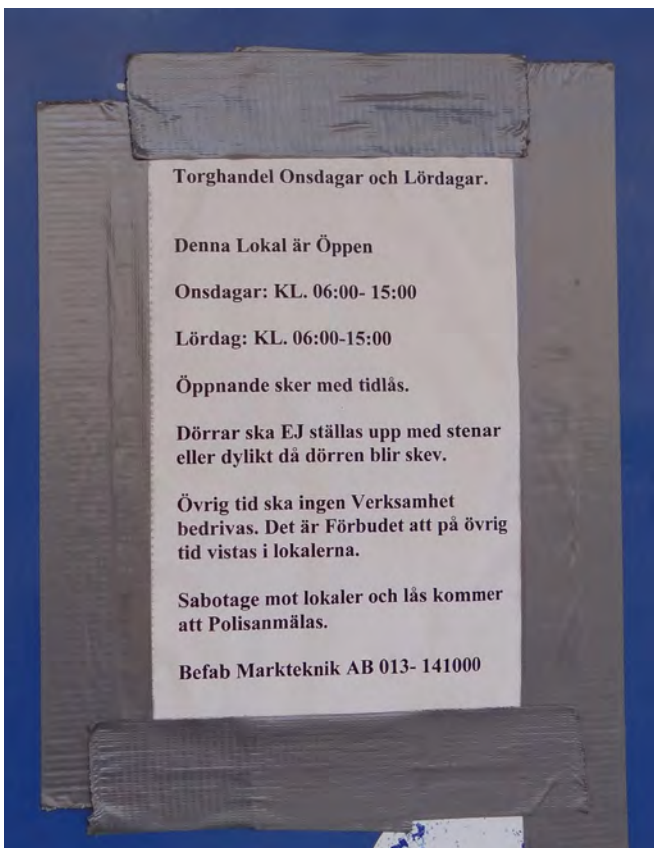 Torghandel Onsdagar och Lördagar.
Denna Lokal är Öppen
Onsdagar: KL. 06:00- 15:00
Lördag: KL. 06:00-15:00
Öppnande sker med tidlås.
Dörrar ska EJ ställas upp med stenar
eller dylikt då dörren blir skev.
Övrig tid ska ingen Verksamhet
bedrivas. Det är Förbudet att på övrig
tid vistas i lokalerna.
Sabotage mot lokaler och lås kommer
att Polisanmälas.
Befab Markteknik AB 013- 141000